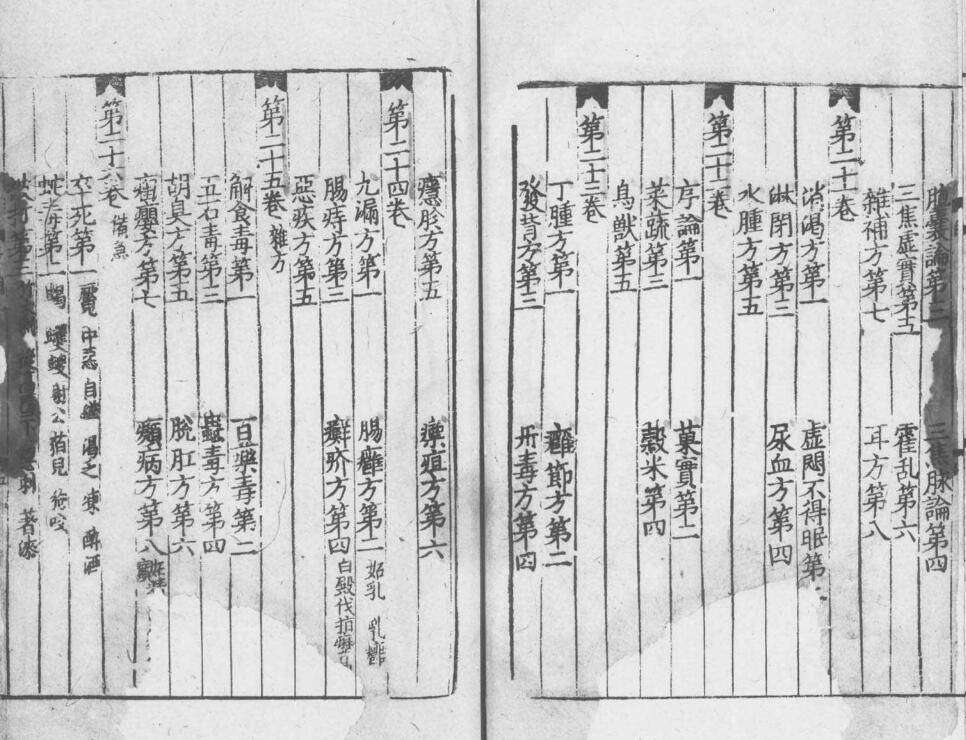 膀囊論第三 三焦脉論第四
三焦虛實第五 霍乱第六
雜補方第七 耳方第八
第二十一卷
消渴方第一 虛悶不得眠第二
淋閉方第三 尿血方第四
水腫方第五
第二十二卷
序論第一 菓實第二
菜蔬第三 穀米第四
鳥獸第五
第二十三卷
丁腫方第一 癰節方第二
發背方第三 丹毒方第四
癮胗方第五 瘭疽方第六
第二十四卷
九漏方第一 腸癰方第二 妬乳 乳癰
腸痔方第三 癬疥方第四 白
惡疾方第五
第二十五卷 雜方
解食毒第一 百藥毒第二
五石毒第三 蠱毒方第四
胡臭方第五 脫肛方第六
癭方第七 癩病方第八
第二十六卷 備急
卒死第一 魘 中惡 自縊 渴乏 凍 醉酒
蛇毒第二 蝎 蠼螋 射公 猫兒
第三 下 射 著漆